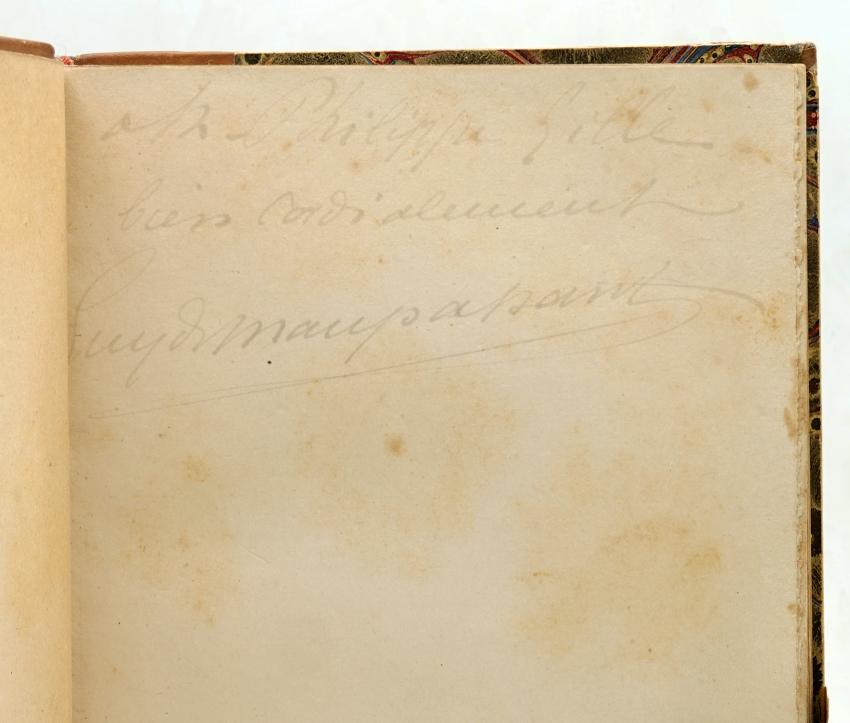 à Philippe Gille
bien cordialement
Guy de Maupassant